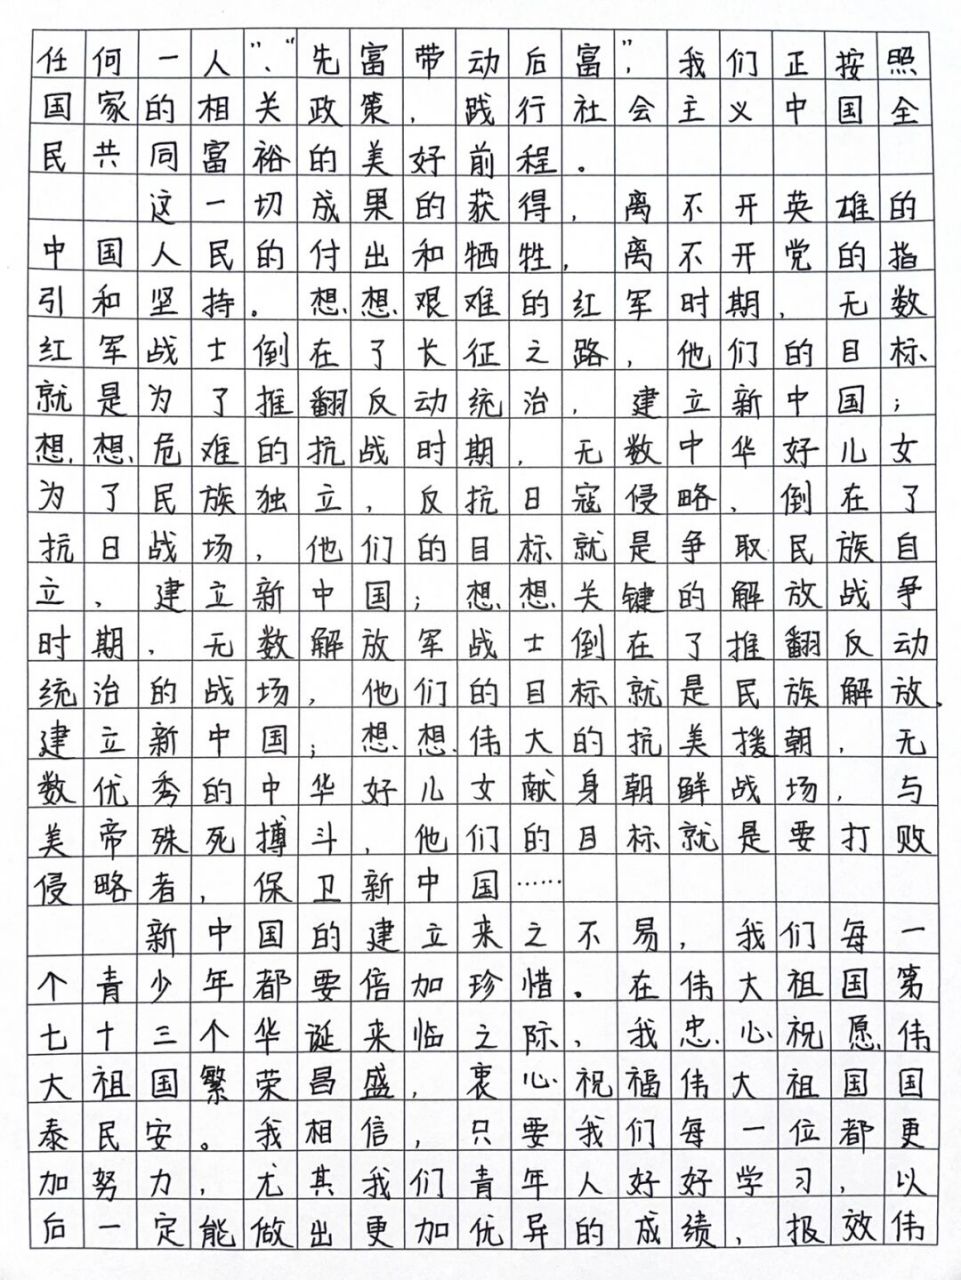 任何一人”、“先富带动后富”，我们正按照
国家的相关政策，践行社会主义中国全
民共同富裕的美好前程。
这一切成果的获得，离不开英雄的
中国人民的付出和牺牲，离不开党的指
引和坚持。想想艰难的红军时期，无数
红军战士倒在了长征之路，他们的目标
就是为了推翻反动统治，建立新中国；
想想危难的抗战时期，无数中华好儿女
为了民族独立，反抗日寇侵略，倒在了
抗日战场，他们的目标就是争取民族自
立，建立新中国；想想关键的解放战争
时期，无数解放军战士倒在了推翻反动
统治的战场，他们的目标就是民族解放，
建立新中国；想想伟大的抗美援朝，无
数优秀的中华好儿女献身朝鲜战场，与
美帝殊死搏斗，他们的目标就是要打败
侵略者，保卫新中国……
新中国的建立来之不易，我们每一
个青少年都要倍加珍惜。在伟大祖国第
七十三个华诞来临之际，我忠心祝愿伟
大祖国繁荣昌盛，衷心祝福伟大祖国国
泰民安。我相信，只要我们每一位都更
加努力，尤其我们青年人好好学习，以
后一定能做出更加优异的成绩，报效伟